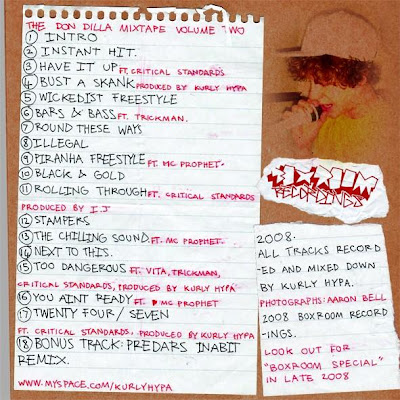 THE DON DILLA MIXTAPE VOLUME TWO
1 INTRO
2 INSTANT HIT.
3 HAVE IT UP FT. CRITICAL STANDARDS
4 BUST A SKANK PRODUCED BY KURLY HYPA
5 WICKEDIST FREESTYLE
6 BARS & BASS FT. TRICKMAN.
7 ROUND THESE WAYS
8 ILLEGAL
9 PIRANHA FREESTYLE FT. MC PROPHET.
10 BLACK & GOLD
11 ROLLING THROUGH FT. CRITICAL STANDARDS
PRODUCED BY I.J
12 STAMPERS
13 THE CHILLING SOUND FT. MC PROPHET.
14 NEXT TO THIS.
15 TOO DANGEROUS FT. VITA, TRICKMAN,
CRITICAL STANDARDS, PRODUCED BY KURLY HYPA
16 YOU AINT READY FT. MC PROPHET
17 TWENTY FOUR / SEVEN
FT. CRITICAL STANDARDS, PRODUCED BY KURLY HYPA
18 BONUS TRACK: PREDARS INABIT
REMIX.
WWW.MYSPACE.COM/KURLYHYPA
BOXROOM
RECORDINGS
2008.
ALL TRACKS RECORD
-ED AND MIXED DOWN
BY KURLY HYPA.
PHOTOGRAPHS: AARON BELL
2008 BOXROOM RECORD
-INGS.
LOOK OUT FOR
"BOXROOM SPECIAL"
IN LATE 2008